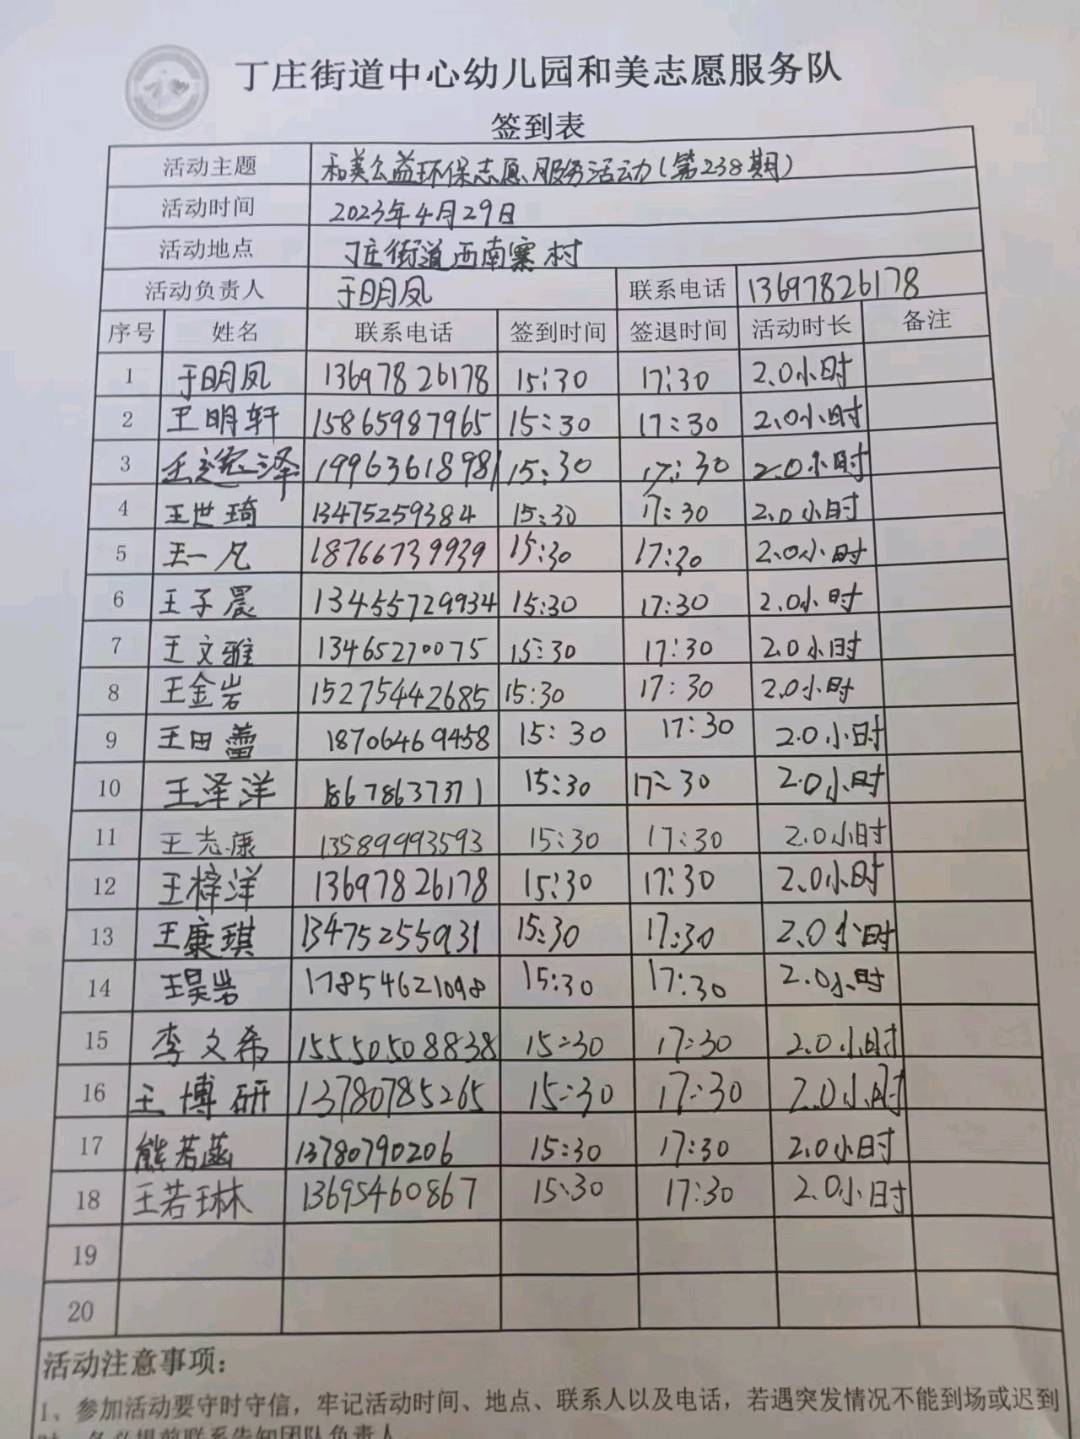 丁庄街道中心幼儿园和美志愿服务队
签到表
活动主题 和美公益环保志愿服务活动(第238期)
活动时间 2023年4月29日
活动地点 丁庄街道西南寨村
活动负责人 于明凤 联系电话 13697826178
序号 姓名 联系电话 签到时间 签退时间 活动时长 备注
1 于明凤 13697826178 15:30 17:30 2.0小时
2 王明轩 15865987965 15:30 17:30 2.0小时
3 王 泽 19963618981 15:30 17:30 2.0小时
4 王世琦 13475259384 15:30 17:30 2.0小时
5 王一凡 18766739939 15:30 17:30 2.0小时
6 王子晨 13455729934 15:30 17:30 2.0小时
7 王文雅 13465270075 15:30 17:30 2.0小时
8 王金岩 15275442685 15:30 17:30 2.0小时
9 王田蕾 18706469458 15:30 17:30 2.0小时
10 王泽洋 18678637371 15:30 17:30 2.0小时
11 王志康 13589993593 15:30 17:30 2.0小时
12 王梓洋 13697826178 15:30 17:30 2.0小时
13 王康琪 13475255931 15:30 17:30 2.0小时
14 王昊岩 17854621098 15:30 17:30 2.0小时
15 李文希 15550508838 15:30 17:30 2.0小时
16 王博研 13780785265 15:30 17:30 2.0小时
17 熊若菡 13780790206 15:30 17:30 2.0小时
18 王若琳 13695460867 15:30 17:30 2.0小时
19
20
活动注意事项:
1、参加活动要守时守信,牢记活动时间、地点、联系人以及电话,若遇突发情况不能到场或迟到
时,务必提前联系告知团队负责人